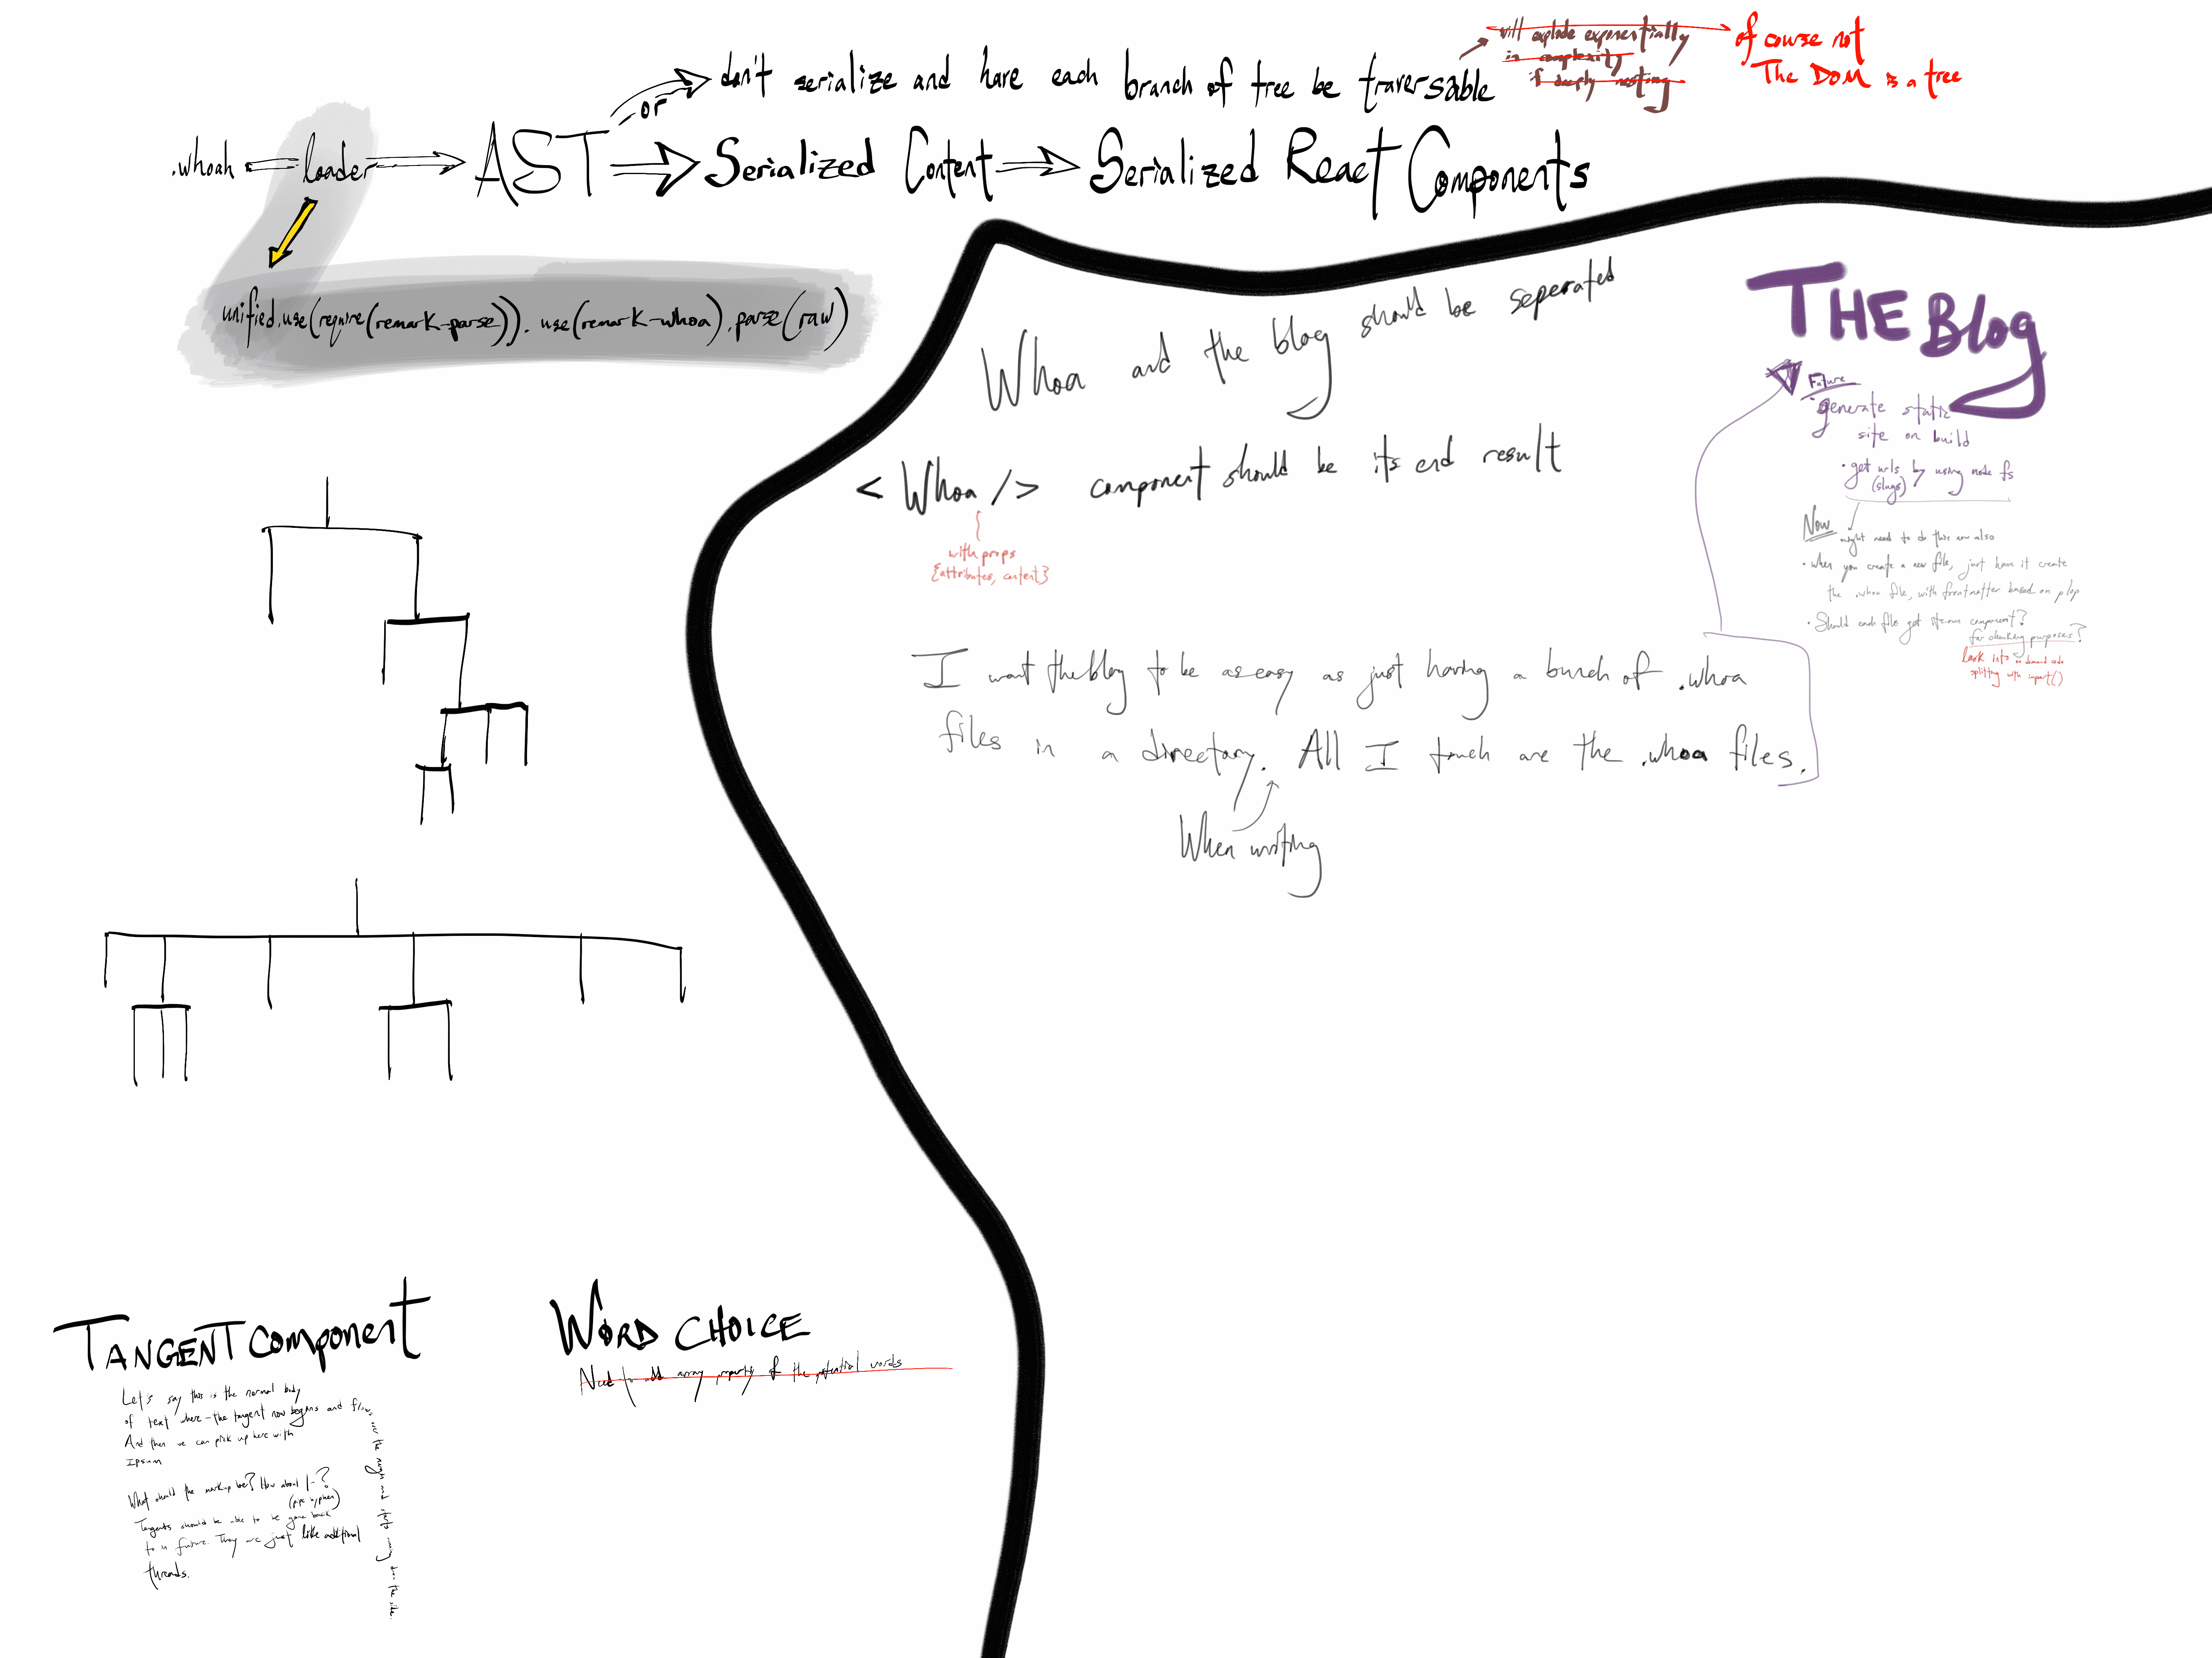 will explode exponentially
in complexity
if deeply nesting
of course not
The DOM is a tree
or
don't serialize and have each branch of tree be traversable
.whoah loader AST Serialized Content Serialized React Components
unified.use(require(remark-parse)).use(remark-whoa).parse(raw)
Whoa and the blog should be seperated
<Whoa /> component should be its end result
with props
{attributes, content}
I want the blog to be as easy as just having a bunch of .whoa
files in a directory. All I touch are the .whoa files.
When writing
THE Blog
Future
generate static
site on build
• get urls by using node fs
(slugs)
Now
might need to do this now also
• when you create a new file, just have it create
the .whoa file, with frontmatter based on plop
• Should each file get its own component?
for chunking purposes?
look into on demand code
splitting with import()
TANGENT Component
Let's say this is the normal body
of text where-the tangent now begins and flows
over the margin and starts going down the side.
And then we can pick up here with
Ipsum
What should the markup be? How about |-?
(pipe hyphen)
Tangents should be able to be gone back
to in future. They are just like additional
threads.
WORD CHOICE
Need to add array property of the potential words